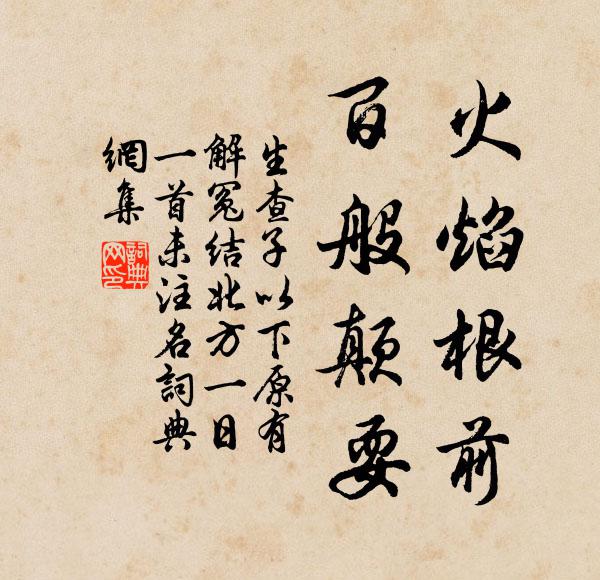 火焰根前
百般颠耍
生查子以下原有
解冤结北方一日
一首未注名詞典
網集
詞典
网印